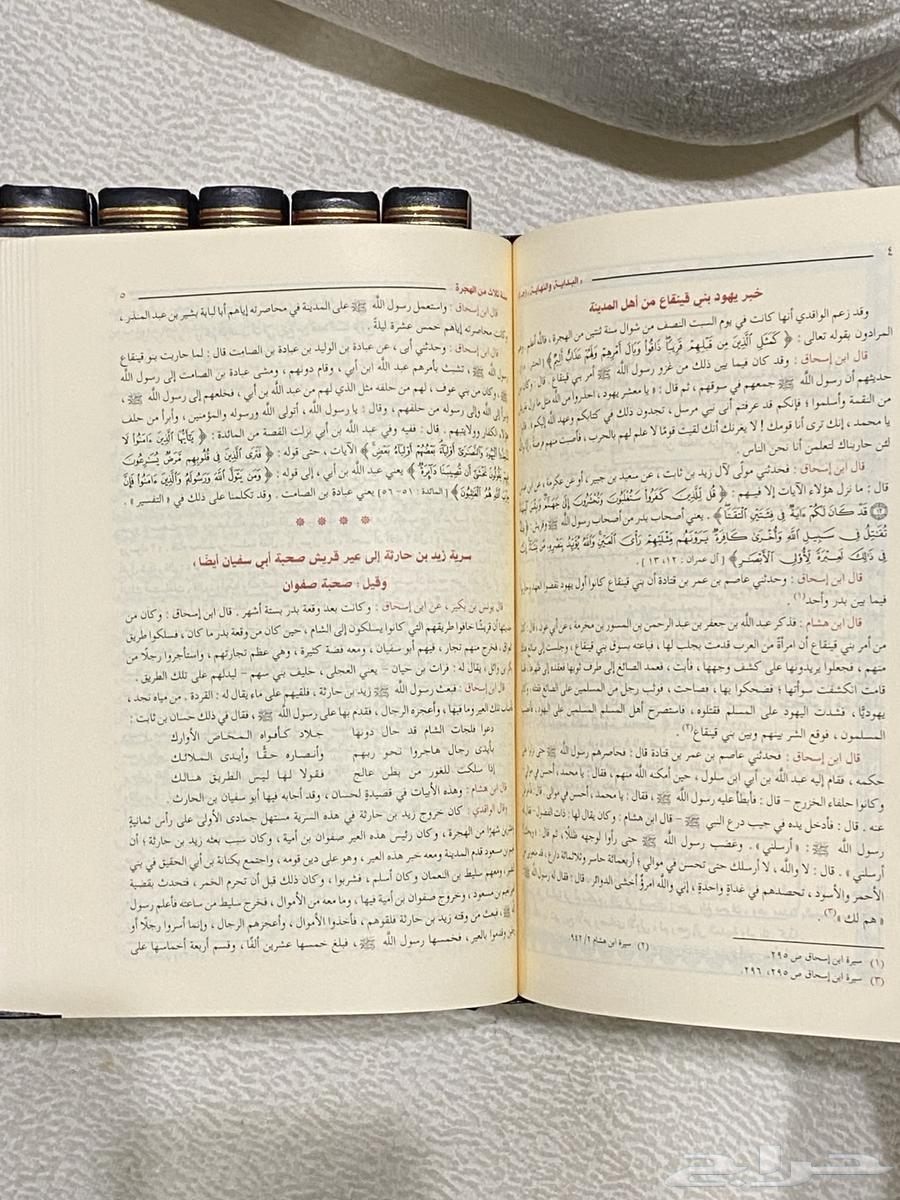 ٤ « البداية والنهاية »
خبر يهود بني قينقاع من أهل المدينة
وقد زعم الواقدي أنها كانت في يوم السبت النصف من شوال سنة ثنتين من الهجرة ، فالله أعلم
المرادون بقوله تعالى : ﴿ كَمَثَلِ الَّذِينَ مِن قَبْلِهِمْ قَرِيبًا ذَاقُوا وَبَالَ أَمْرِهِمْ وَلَهُمْ عَذَابٌ أَلِيمٌ ﴾ [ الحشر :
قال ابن إسحاق : وقد كان فيما بين ذلك من غزو رسول الله ﷺ أمر بني قينقاع . قال : وكان
حديثهم أن رسول الله ﷺ جمعهم في سوقهم ، ثم قال : « يا معشر يهود ، احذروا من الله مثل ما نزل بقريش
من النقمة وأسلموا ؛ فإنكم قد عرفتم أني نبي مرسل ، تجدون ذلك في كتابكم وعهد الله إليكم
يا محمد ، إنك ترى أنا قومك ! لا يغرنك أنك لقيت قومًا لا علم لهم بالحرب ، فأصبت منهم فرصة
لئن حاربناك لتعلمن أنا نحن الناس .
قال ابن إسحاق : فحدثني مولًى لآل زيد بن ثابت ، عن سعيد بن جبير ، أو عن عكرمة ، عن ابن
قال : ما نزل هؤلاء الآيات إلا فيهم : ﴿ قُل لِّلَّذِينَ كَفَرُوا سَتُغْلَبُونَ وَتُحْشَرُونَ إِلَىٰ جَهَنَّمَ وَبِئْسَ الْمِهَادُ
⑫ قَدْ كَانَ لَكُمْ ءَايَةٌ فِي فِئَتَيْنِ الْتَقَتَا ﴾ . يعني أصحاب بدر من أصحاب رسول الله ﷺ وقريش ﴿ فِئَةٌ
تُقَاتِلُ فِي سَبِيلِ اللَّهِ وَأُخْرَىٰ كَافِرَةٌ يَرَوْنَهُم مِّثْلَيْهِمْ رَأْيَ الْعَيْنِ وَاللَّهُ يُؤَيِّدُ بِنَصْرِهِ مَن يَشَاءُ
فِي ذَٰلِكَ لَعِبْرَةً لِّأُولِي الْأَبْصَارِ ﴾ [ آل عمران : ١٢، ١٣ ] .
قال ابن إسحاق : وحدثني عاصم بن عمر بن قتادة أن بني قينقاع كانوا أول يهود نقضوا العهد وحاربوا
فيما بين بدر وأحد(١) .
قال ابن هشام : فذكر عبد الله بن جعفر بن عبد الرحمن بن المسور بن مخرمة ، عن أبي عون ، قال
من أمر بني قينقاع أن امرأةً من العرب قدمت بجلب لها ، فباعته بسوق بني قينقاع ، وجلست إلى صائغ
منهم ، فجعلوا يريدونها على كشف وجهها ، فأبت ، فعمد الصائغ إلى طرف ثوبها فعقده إلى ظهرها
قامت انكشفت سوأتها ؛ فضحكوا بها ، فصاحت ، فوثب رجل من المسلمين على الصائغ فقتله
يهوديًّا ، فشدت اليهود على المسلم فقتلوه ، فاستصرخ أهل المسلم المسلمين على اليهود
المسلمون ، فوقع الشر بينهم وبين بني قينقاع(٢) .
قال ابن إسحاق : فحدثني عاصم بن عمر بن قتادة قال : فحاصرهم رسول الله ﷺ حتى نزلوا على
حكمه ، فقام إليه عبد الله بن أبي ابن سلول ، حين أمكنه الله منهم ، فقال : يا محمد ، أحسن في موالي
وكانوا حلفاء الخزرج – قال : فأبطأ عليه رسول الله ﷺ ، فقال : يا محمد ، أحسن في موالي
عنه . قال : فأدخل يده في جيب درع النبي ﷺ – قال ابن هشام : وكان يقال لها : ذات الفضول – فقال
رسول الله ﷺ : « أرسلني » . وغضب رسول الله ﷺ حتى رأوا لوجهه ظللًا ، ثم قال :
أرسلني » . قال : لا والله ، لا أرسلك حتى تحسن في موالي ؛ أربعمائة حاسر وثلاثمائة دارع ، قد منعوني
الأحمر والأسود ، تحصدهم في غداة واحدةٍ ، إني والله امرؤ أخشى الدوائر . قال : فقال له رسول الله ﷺ
« هم لك »(٣) .
(١) سيرة ابن إسحاق ص ٢٩٥. (٢) سيرة ابن هشام ٩٤٢/٢
(٣) سيرة ابن إسحاق ص ٢٩٥، ٢٩٦.
سنة ثلاث من الهجرة ٥
قال ابن إسحاق : واستعمل رسول الله ﷺ على المدينة في محاصرته إياهم أبا لبابة بشير بن عبد المنذر ،
وكانت محاصرته إياهم خمس عشرة ليلةً .
قال ابن إسحاق : وحدثني أبى ، عن عبادة بن الوليد بن عبادة بن الصامت قال : لما حاربت بنو قينقاع
رسول الله ﷺ ، تشبث بأمرهم عبد الله ابن أبي ، وقام دونهم ، ومشى عبادة بن الصامت إلى رسول الله
وكان من بني عوف ، لهم من حلفه مثل الذي لهم من عبد الله بن أبي ، فخلعهم إلى رسول الله ﷺ ،
إلى الله وإلى رسوله من حلفهم ، وقال : يا رسول الله ، أتولى الله ورسوله والمؤمنين ، وأبرأ من حلف
الكفار وولايتهم . قال : ففيه وفي عبد الله بن أبي نزلت القصة من المائدة : ﴿ يَٰٓأَيُّهَا الَّذِينَ ءَامَنُوا لَا
الْيَهُودَ وَالنَّصَٰرَىٰٓ أَوْلِيَآءَ بَعْضُهُمْ أَوْلِيَآءُ بَعْضٍ ﴾ الآيات ، حتى قوله : ﴿ فَتَرَى الَّذِينَ فِي قُلُوبِهِم مَّرَضٌ يُسَٰرِعُونَ
يَقُولُونَ نَخْشَىٰٓ أَن تُصِيبَنَا دَآئِرَةٌ ﴾ يعني عبد الله بن أبي ، إلى قوله : ﴿ وَمَن يَتَوَلَّ اللَّهَ وَرَسُولَهُ وَالَّذِينَ ءَامَنُوا فَإِنَّ
حِزْبَ اللَّهِ هُمُ الْغَٰلِبُونَ ﴾ [ المائدة : ٥١- ٥٦ ] يعني عبادة بن الصامت . وقد تكلمنا على ذلك في « التفسير » .
سرية زيد بن حارثة إلى عير قريش صحبة أبي سفيان أيضًا ،
وقيل : صحبة صفوان
قال يونس بن بكير ، عن ابن إسحاق : وكانت بعد وقعة بدر بستة أشهر . قال ابن إسحاق : وكان من
حديثها أن قريشًا خافوا طريقهم التي كانوا يسلكون إلى الشام ، حين كان من وقعة بدر ما كان ، فسلكوا طريق
العراق ، فخرج منهم تجار ، فيهم أبو سفيان ، ومعه فضة كثيرة ، وهي عظم تجارتهم ، واستأجروا رجلًا من
بكر بن وائل ، يقال له : فرات بن حيان – يعني العجلى ، حليف بني سهم – ليدلهم على تلك الطريق .
قال ابن إسحاق : فبعث رسول الله ﷺ زيد بن حارثة ، فلقيهم على ماء يقال له : القردة . من مياه نجد ،
فأصاب تلك العير وما فيها ، وأعجزه الرجال ، فقدم بها على رسول الله ﷺ ، فقال في ذلك حسان بن ثابت :
دعوا فلجات الشام قد حال دونها جلاد كأفواه المخاض الأوارك
بأيدى رجال هاجروا نحو ربهم وأنصاره حقًّا وأيدى الملائك
إذا سلكت للغور من بطن عالج فقولا لها ليس الطريق هنالك
قال ابن هشام : وهذه الأبيات في قصيدةٍ لحسان ، وقد أجابه فيها أبو سفيان بن الحارث .
وقال الواقدي : كان خروج زيد بن حارثة في هذه السرية مستهل جمادى الأولى على رأس ثمانيةٍ
وعشرين شهرًا من الهجرة ، وكان رئيس هذه العير صفوان بن أمية ، وكان سبب بعثه زيد بن حارثة ؛ أن
نعيم بن مسعود قدم المدينة ومعه خبر هذه العير ، وهو على دين قومه ، واجتمع بكنانة بن أبي الحقيق في بني
النضير ، ومعهم سليط بن النعمان وكان أسلم ، فشربوا ، وكان ذلك قبل أن تحرم الخمر ، فتحدث بقضية
العير نعيم بن مسعود ، وخروج صفوان بن أمية فيها ، وما معه من الأموال ، فخرج سليط من ساعته فأعلم رسول
الله ﷺ ، فبعث من وقته زيد بن حارثة فلقوهم ، فأخذوا الأموال ، وأعجزهم الرجال ، وإنما أسروا رجلًا أو
رجلين وقدموا بالعير ، فخمسها رسول الله ﷺ ، فبلغ خمسها عشرين ألفًا ، وقسم أربعة أخماسها على
حراج